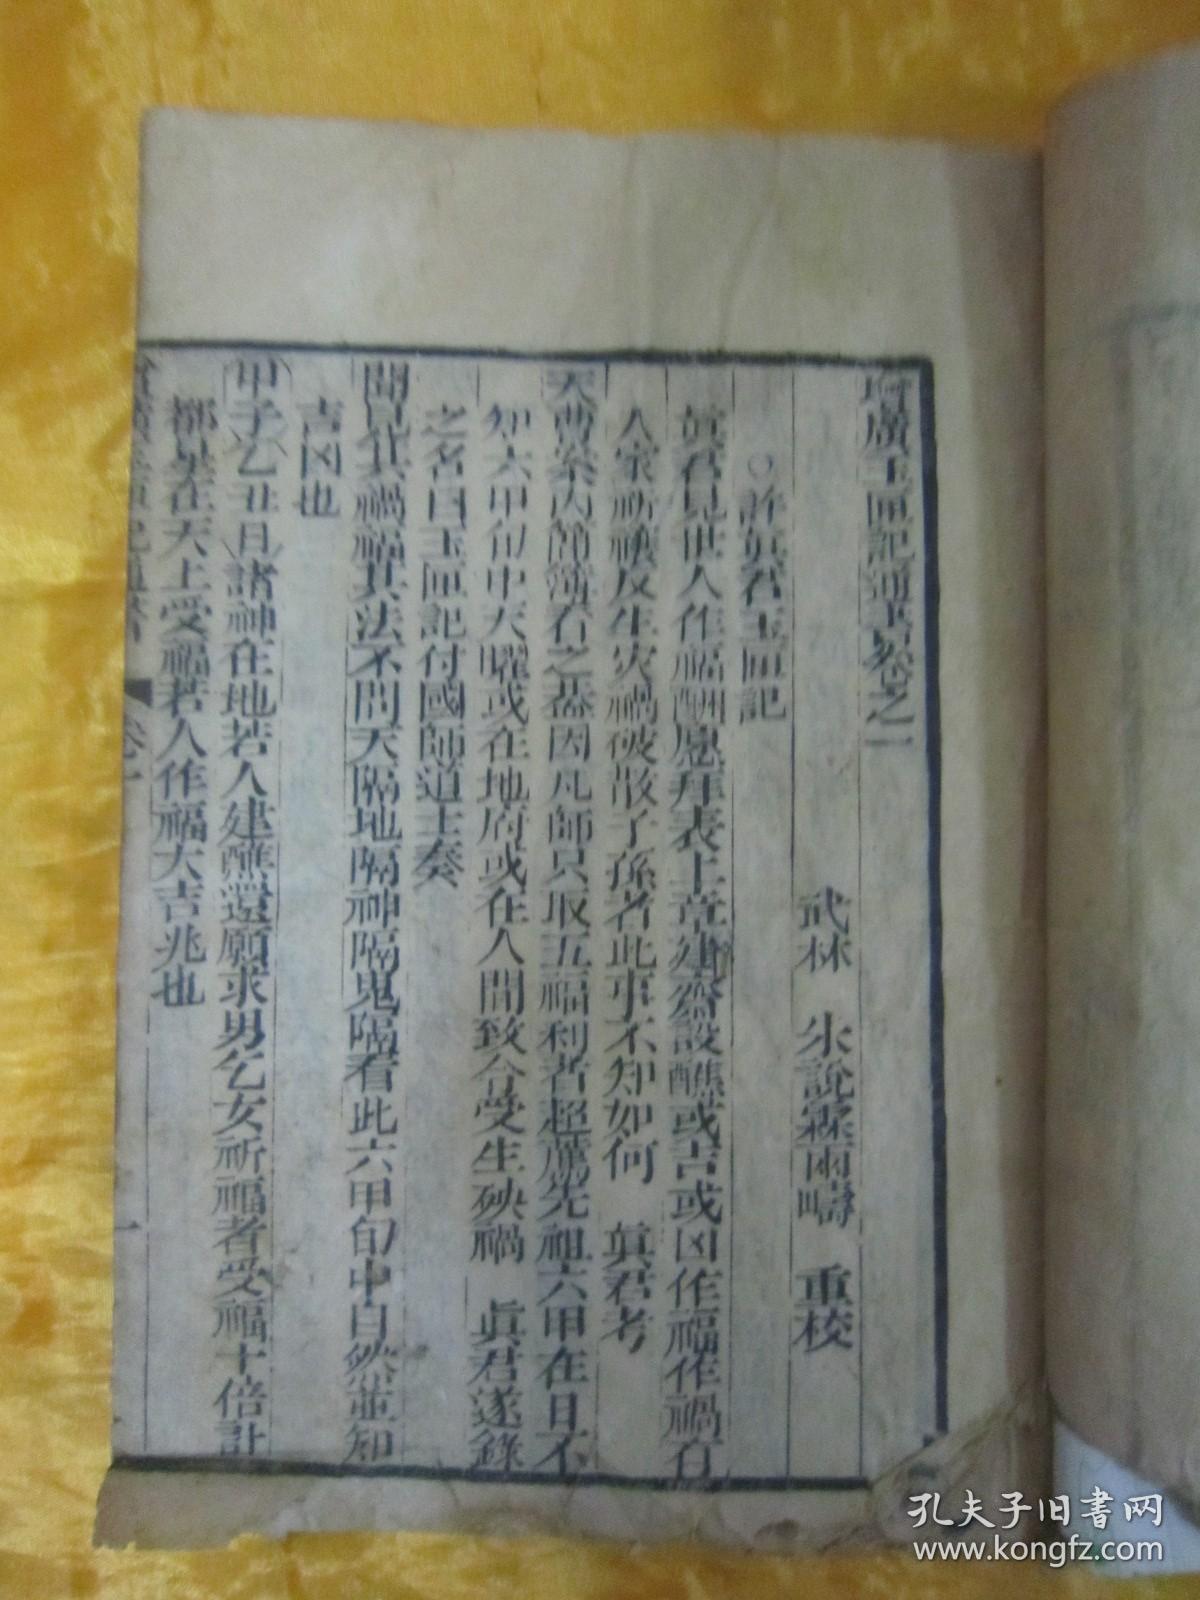 增廣玉匣記通書卷之一
武林 朱說霖雨疇 重校
○許真君玉匣記
真君見世人作福酬愿拜表上章建齋設醮或吉或凶作福作禍有
人家祈禳反生災禍破散子孫者此事不知如何 真君考
天曹案內簡簿看之葢因凡師只取五福利者超薦先祖六甲在日不
知六甲旬中天曜或在地府或在人間致令受生殃禍 眞君遂錄
之名曰玉匣記付國師道主奏
聞見其禍福其法不問天隔地隔神隔鬼隔看此六甲旬中自然並知
吉凶也
甲子乙丑日諸神在地若人建醮還願求男乞女祈福者受福十倍計
都是在天上受福若人作福大吉兆也
卷一
一
孔夫子旧书网
www.kongfz.com